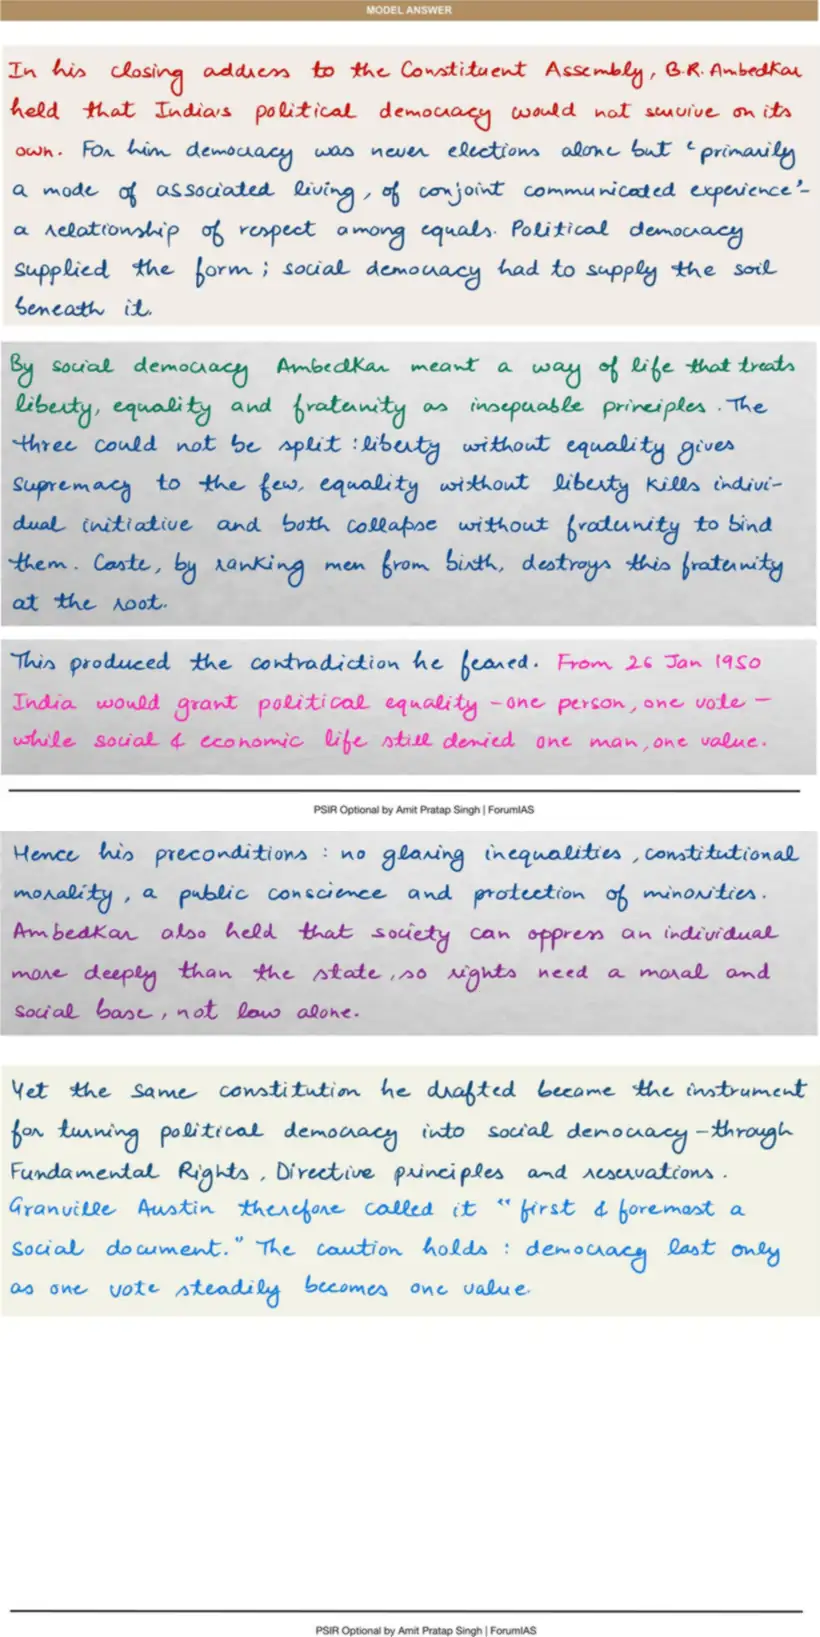 MODEL ANSWER
In his closing address to the Constituent Assembly, B.R. Ambedkar
held that India's political democracy would not survive on its
own. For him democracy was never elections alone but 'primarily
a mode of associated living, of conjoint communicated experience'-
a relationship of respect among equals. Political democracy
supplied the form; social democracy had to supply the soil
beneath it.
By social democracy Ambedkar meant a way of life that treats
liberty, equality and fraternity as inseparable principles. The
three could not be split : liberty without equality gives
supremacy to the few, equality without liberty kills indivi-
dual initiative and both collapse without fraternity to bind
them. Caste, by ranking men from birth, destroys this fraternity
at the root.
This produced the contradiction he feared. From 26 Jan 1950
India would grant political equality - one person, one vote -
while social & economic life still denied one man, one value.
PSIR Optional by Amit Pratap Singh | ForumIAS
Hence his preconditions : no glaring inequalities, constitutional
morality, a public conscience and protection of minorities.
Ambedkar also held that society can oppress an individual
more deeply than the state, so rights need a moral and
social base, not law alone.
Yet the same constitution he drafted became the instrument
for turning political democracy into social democracy - through
Fundamental Rights, Directive principles and reservations.
Granville Austin therefore called it "first & foremost a
social document." The caution holds : democracy last only
as one vote steadily becomes one value.
PSIR Optional by Amit Pratap Singh | ForumIAS